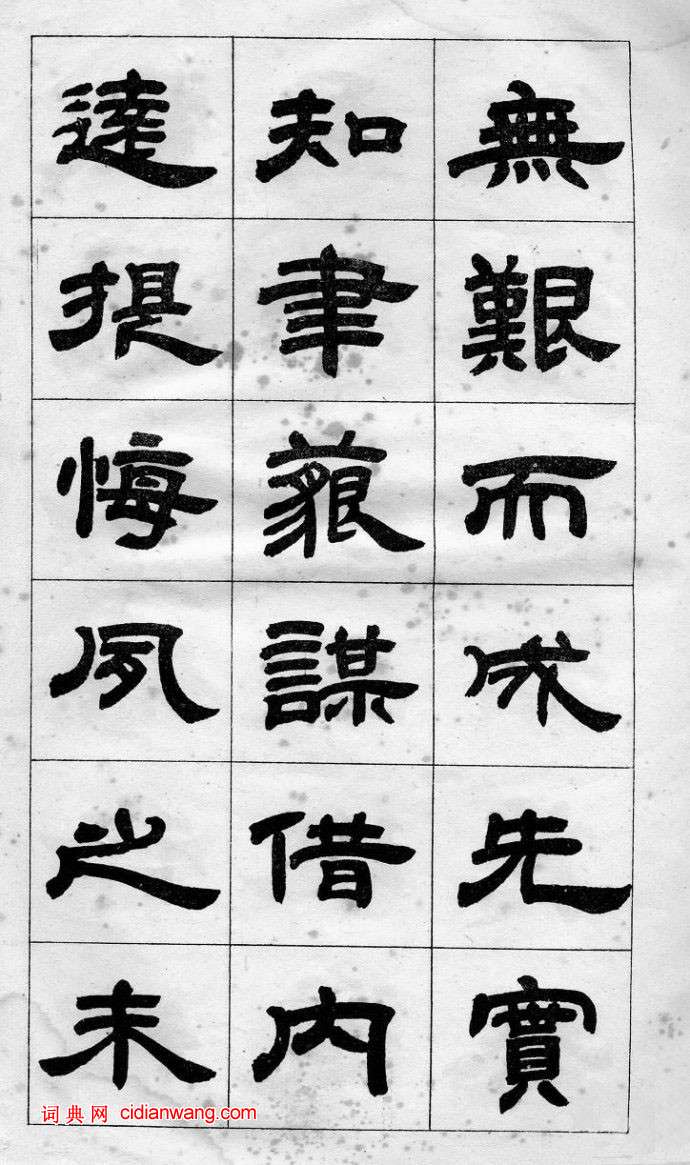 無艱而成先實
知聿藐謀借内
達提悔夙之未
词典网 cidianwang.com